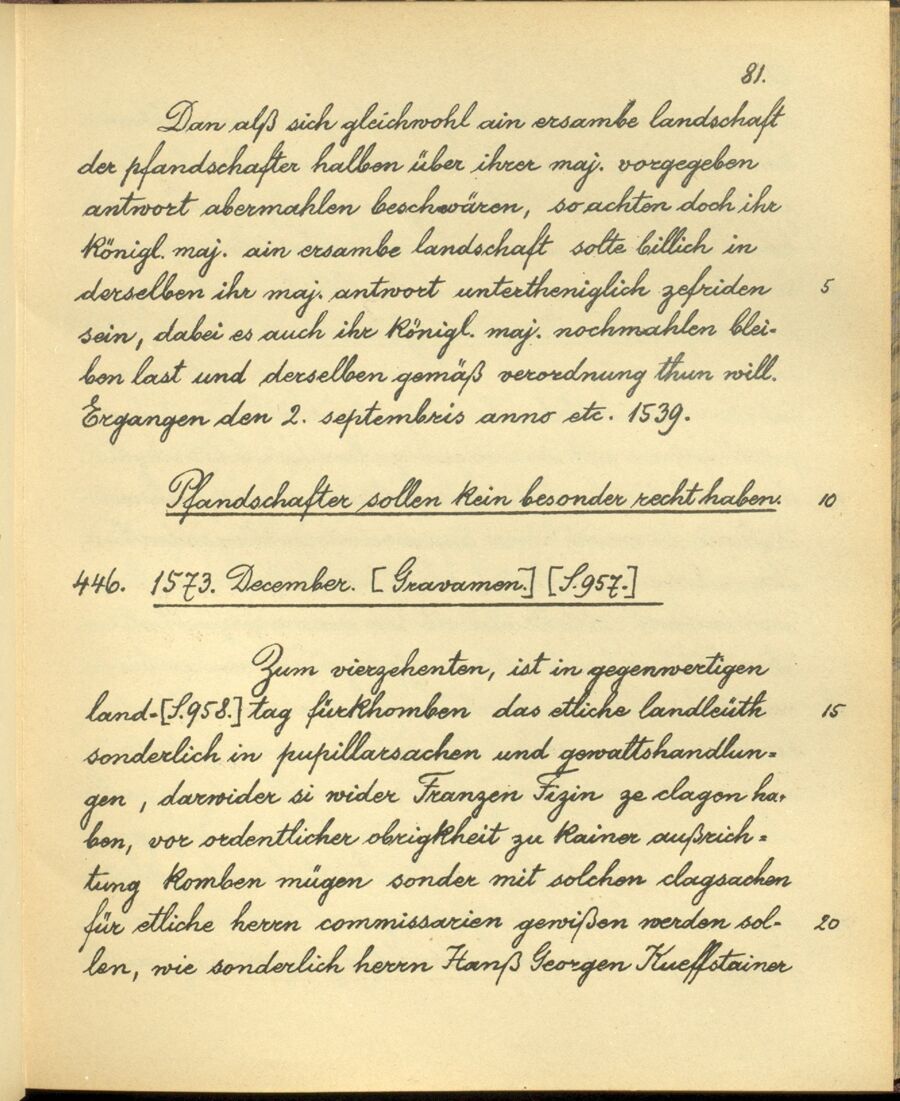 81.
Dan alß sich gleichwohl ain ersambe landschaft
der pfandschafter halben über ihrer maj. vorgegeben
antwort abermahlen beschwären, so achten doch ihr
königl. maj. ain ersambe landschaft solte billich in
derselben ihr maj. antwort untertheniglich zefriden 5
sein, dabei es auch ihr königl. maj. nochmahlen blei-
ben last und derselben gemäß verordnung thun will.
Ergangen den 2. septembris anno etc. 1539.
Pfandschafter sollen kein besonder recht haben. 10
446. 1573. December. [Gravamen.] [S.957.]
Zum vierzehenten, ist in gegenwertigen
land-[S.958.] tag fürkhomben das etliche landleüth 15
sonderlich in pupillarsachen und gewaltshandlun-
gen, darwider si wider Franzen Fizin ze clagen ha-
ben, vor ordentlicher obrigkheit zu kainer außrich-
tung komben mügen sonder mit solchen clagsachen
für etliche herrn commissarien gewißen werden sol- 20
len, wie sonderlich herrn Hanß Georgen Kueffstainer